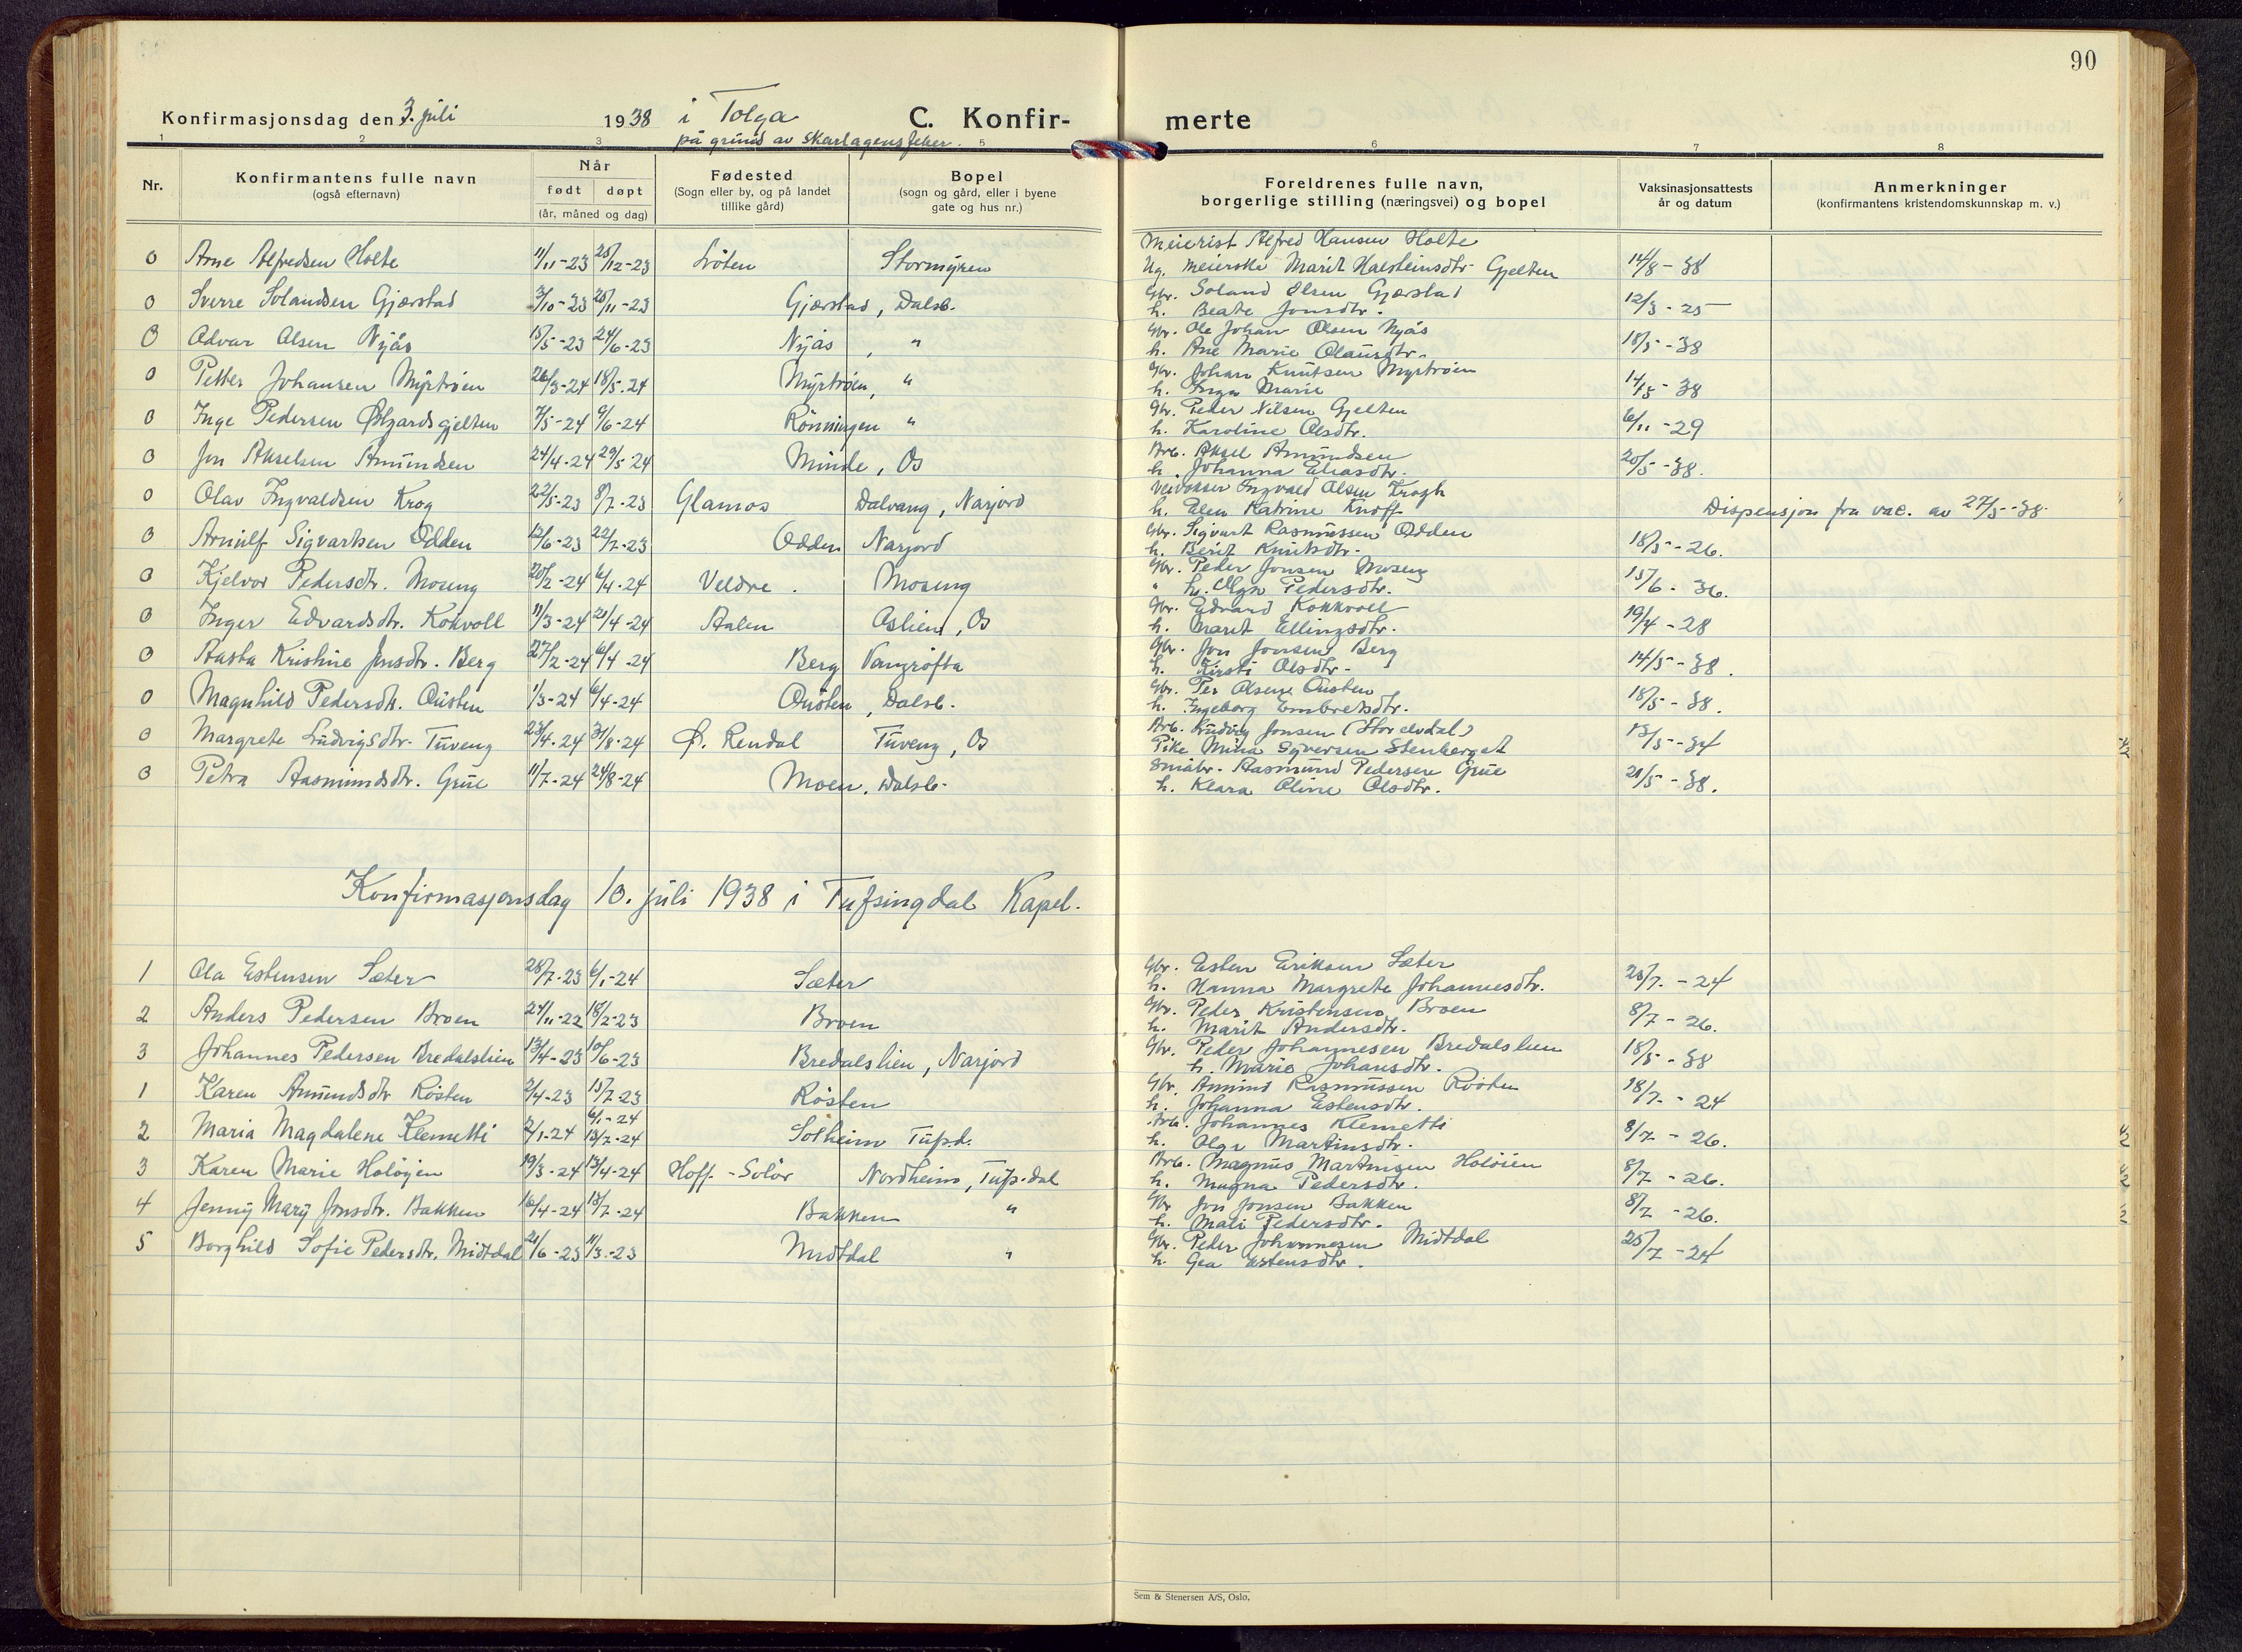 90
Konfirmasjonsdag den 3. juli 1938 i Tolga C. Konfir- merte
på grund av skarlagensfeber.
1 2 3 5 6 7 8
Nr. Konfirmantens fulle navn (også efternavn) Når født døpt (år, måned og dag) Fødested (Sogn eller by, og på landet tillike gård) Bopel (sogn og gård, eller i byene gate og hus nr.) Foreldrenes fulle navn, borgerlige stilling (næringsvei) og bopel Vaksinasjonsattests år og datum Anmerkninger (konfirmantens kristendomskunnskap m. v.)
Meierist Alfred Hansen Holte
0 Arne Alfredsen Holte 11/11-23 25/12-23 Løten Stormyren Ug. meierske Marit Halsteinsdtr. Gjelten 14/8-38
Gbr. Soland Olsen Gjærstad
0 Sverre Solandsen Gjærstad 3/10-23 25/11-23 Gjærstad, Dalsb. h. Beate Jonsdtr. 12/3-25
Gbr. Ole Johan Olsen Nyås
0 Odvar Olsen Nyås 15/5-23 24/6-23 Nyås, " h. Ane Marie Olausdtr. 18/5-38
Gbr. Johan Knutsen Myrtrøen
0 Petter Johansen Myrtrøen 26/3-24 18/5-24 Myrtrøen, " h. Inga Marie 14/5-38
Gbr. Peder Nilsen Gjelten
0 Inge Pedersen Østgardsgjelten 7/5-24 9/6-24 Rønningen " h. Karoline Olsdtr. 6/11-29
Arb. Aksel Amundsen
0 Jon Akselsen Amundsen 24/4-24 29/5-24 Minde, Os h. Johanna Eliasdtr. 20/5-38.
Veivokter Ingvald Olsen Krogh
0 Olav Ingvaldsen Krog 22/5-23 8/7-23 Glåmos Dalvang, Narjord h. Elen Katrine Knoff Dispensjon fra vac. av 27/5-38.
Gbr. Sigvart Rasmussen Odden
0 Arnulf Sigvartsen Odden 12/6-23 22/7-23 Odden Narjord h. Berit Knutsdtr. 18/5-26.
Gbr. Peder Jonsen Moseng
0 Kjelvor Pedersdtr. Moseng 20/2-24 6/4-24 Veldre. Moseng " h. Olga Pedersdtr. 15/6-36.
Gbr. Edvard Kokkvoll
0 Inger Edvardsdtr. Kokvoll 11/3-24 21/4-24 Aalen Oslien, Os h. Marit Ellingsdtr. 19/4-28
Gbr. Jon Jonsen Berg
0 Aasta Kristine Jonsdtr. Berg 27/2-24 6/4-24 Berg Vangrøfta h. Kirsti Olsdtr. 14/5-38.
Gbr. Per Olsen Ousten
0 Magnhild Pedersdtr. Ousten 1/3-24 6/4-24 Ousten, Dalsb. h. Ingeborg Embretsdtr. 18/5-38.
Arb. Ludvig Jonsen (Storelvdal)
0 Margrete Ludvigsdtr. Tuveng 23/4-24 31/8-24 Ø. Rendal Tuveng, Os Pike Mina Syversen Stenberget 13/5-34
Småbr. Aasmund Pedersen Grue
0 Petra Aasmundsdtr. Grue 11/7-24 24/8-24 Moen, Dalsb. h. Klara Oline Olsdtr. 21/5-38.
Konfirmasjonsdag 10. juli 1938 i Tufsingdal Kapel.
Gbr. Esten Eriksen Sæter
1 Ola Estensen Sæter 28/7-23 6/1-24 Sæter h. Hanna Margrete Johannesdtr. 25/7-24
Gbr. Peder Kristensen Broen
2 Anders Pedersen Broen 24/11-22 18/2-23 Broen h. Marit Andersdtr. 8/7-26.
Gbr. Peder Johannesen Bredalslien
3 Johannes Pedersen Bredalslien 13/4-23 10/6-23 Bredalslien, Narjord h. Marie Johansdtr. 18/5-38
Gbr. Amund Rasmussen Røsten
1 Karen Amundsdtr Røsten 2/4-23 15/7-23 Røsten h. Johanna Estensdtr. 18/7-24
6/1-24 Arb. Johannes Klemetti
2 Maria Magdalene Klemetti 2/1-24 13/7-24 Solheim Tufsd. h. Olga Martinsdtr. 8/7-26.
Arb. Magnus Martinsen Holøien
3 Karen Marie Holøyen 19/3-24 13/4-24 Hoff-Solør Nordheim, Tufs.dal h. Magna Pedersdtr. 8/7-26.
Gbr Jon Jonsen Bakken
4 Jenny Mary Jonsdtr. Bakken 16/4-24 13/7-24 Bakken " h. Mali Pedersdtr. 8/7-26.
Gbr. Peder Johannesen Midtdal
5 Borghild Sofie Pedersdtr. Midtdal 21/6-23 11/3-23 Midtdal " h. Gea Estensdtr. 25/7-24
Sem & Stenersen A/S, Oslo.